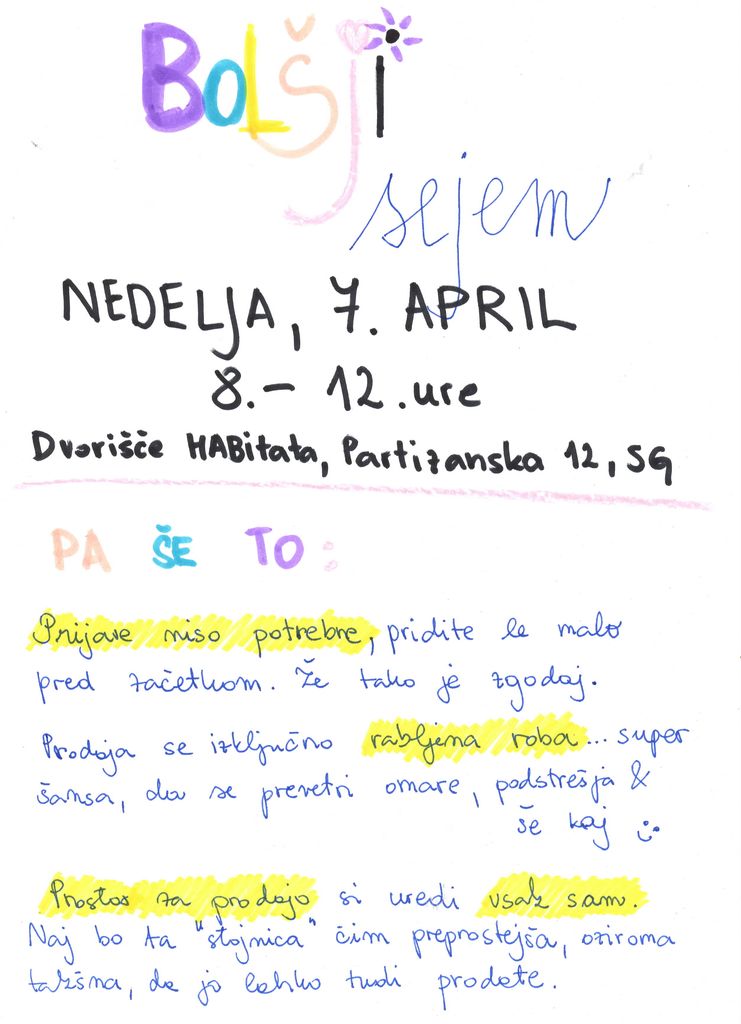 BOLŠJI
sejem
NEDELJA, 7. APRIL
8. – 12. ure
Dvorišče HABitata, Partizanska 12, SG
PA ŠE TO:
Prijave niso potrebne, pridite le malo
pred začetkom. Že tako je zgodaj.
Prodaja se izključno rabljena roba... super
šansa, da se prevetri omare, podstrešja &
še kaj :)
Prostor za prodajo si uredi vsak sam.
Naj bo ta "stojnica" čim preprostejša, oziroma
takšna, da jo lahko tudi prodate.